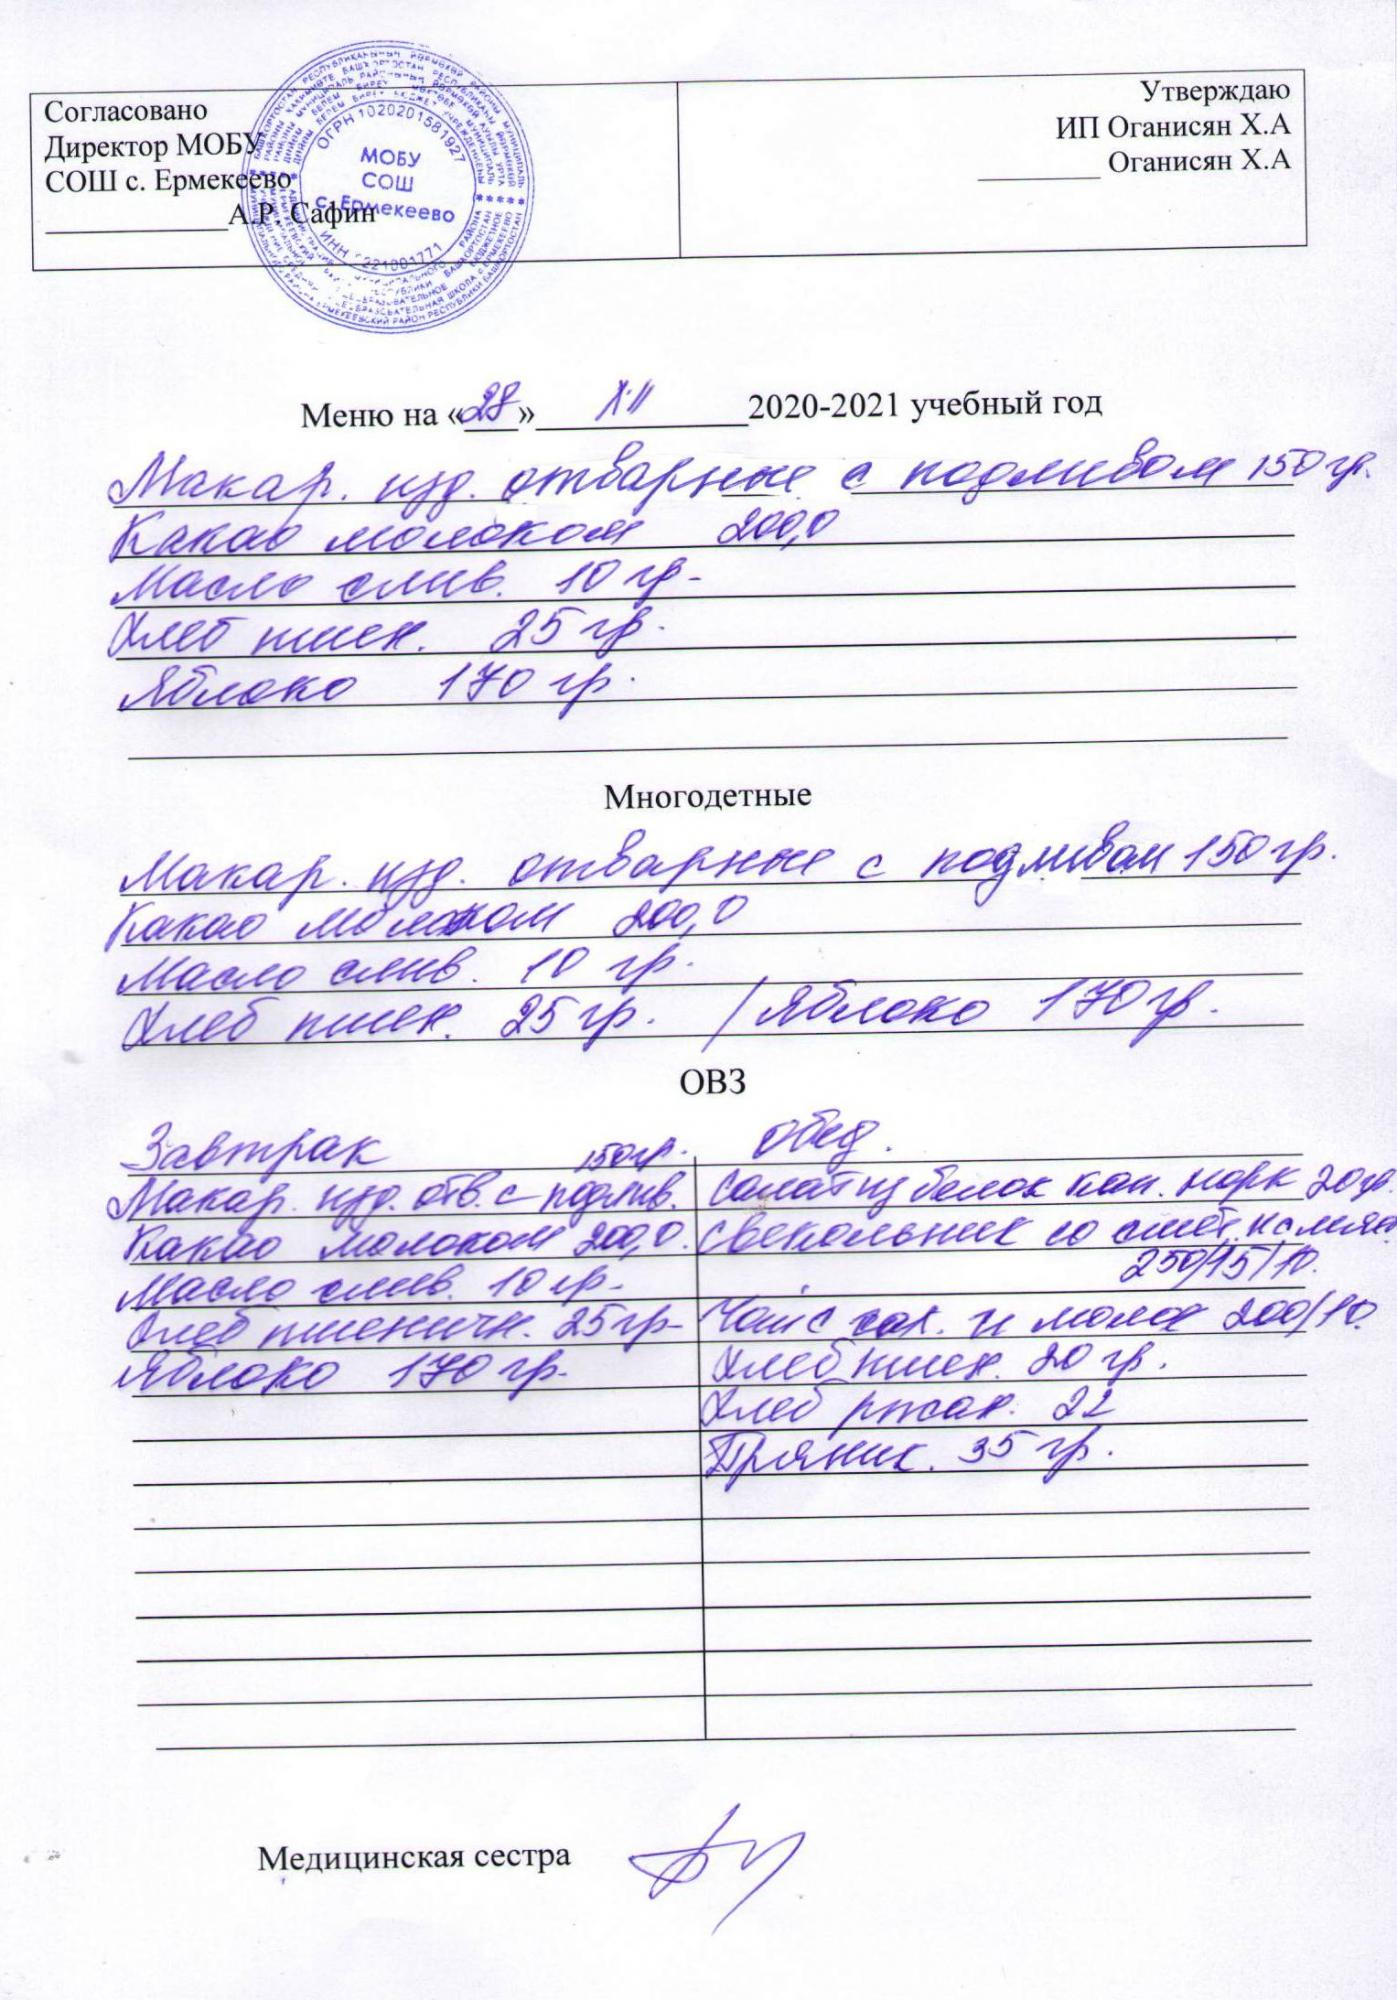 Согласовано
Директор МОБУ
СОШ с. Ермекеево
_____________А.Р. Сафин
Утверждаю
ИП Оганисян Х.А
_________ Оганисян Х.А
ОГРН 1020201581927
МОБУ
СОШ
с. Ермекеево
Меню на «28» XII 2020-2021 учебный год
Макар. изд. отварные с подливом 150 гр.
Какао молоком 200,0
Масло слив. 10 гр.
Хлеб пшен. 25 гр.
Яблоко 170 гр.
Многодетные
Макар. изд. отварные с подливом 150 гр.
Какао молоком 200,0
Масло слив. 10 гр.
Хлеб пшен. 25 гр. / Яблоко 170 гр.
ОВЗ
Завтрак 150 гр.
Макар. изд. отв. с подлив.
Какао молоком 200,0.
Масло слив. 10 гр.
Хлеб пшеничн. 25 гр.
Яблоко 170 гр.
Обед.
Салат из белок кап. морк 20 гр.
Свекольник со смет. и с мяс.
250/15/10.
Чай с сах. и молок 200/10.
Хлеб пшен. 20 гр.
Хлеб ржан. 22
Пряник. 35 гр.
Медицинская сестра